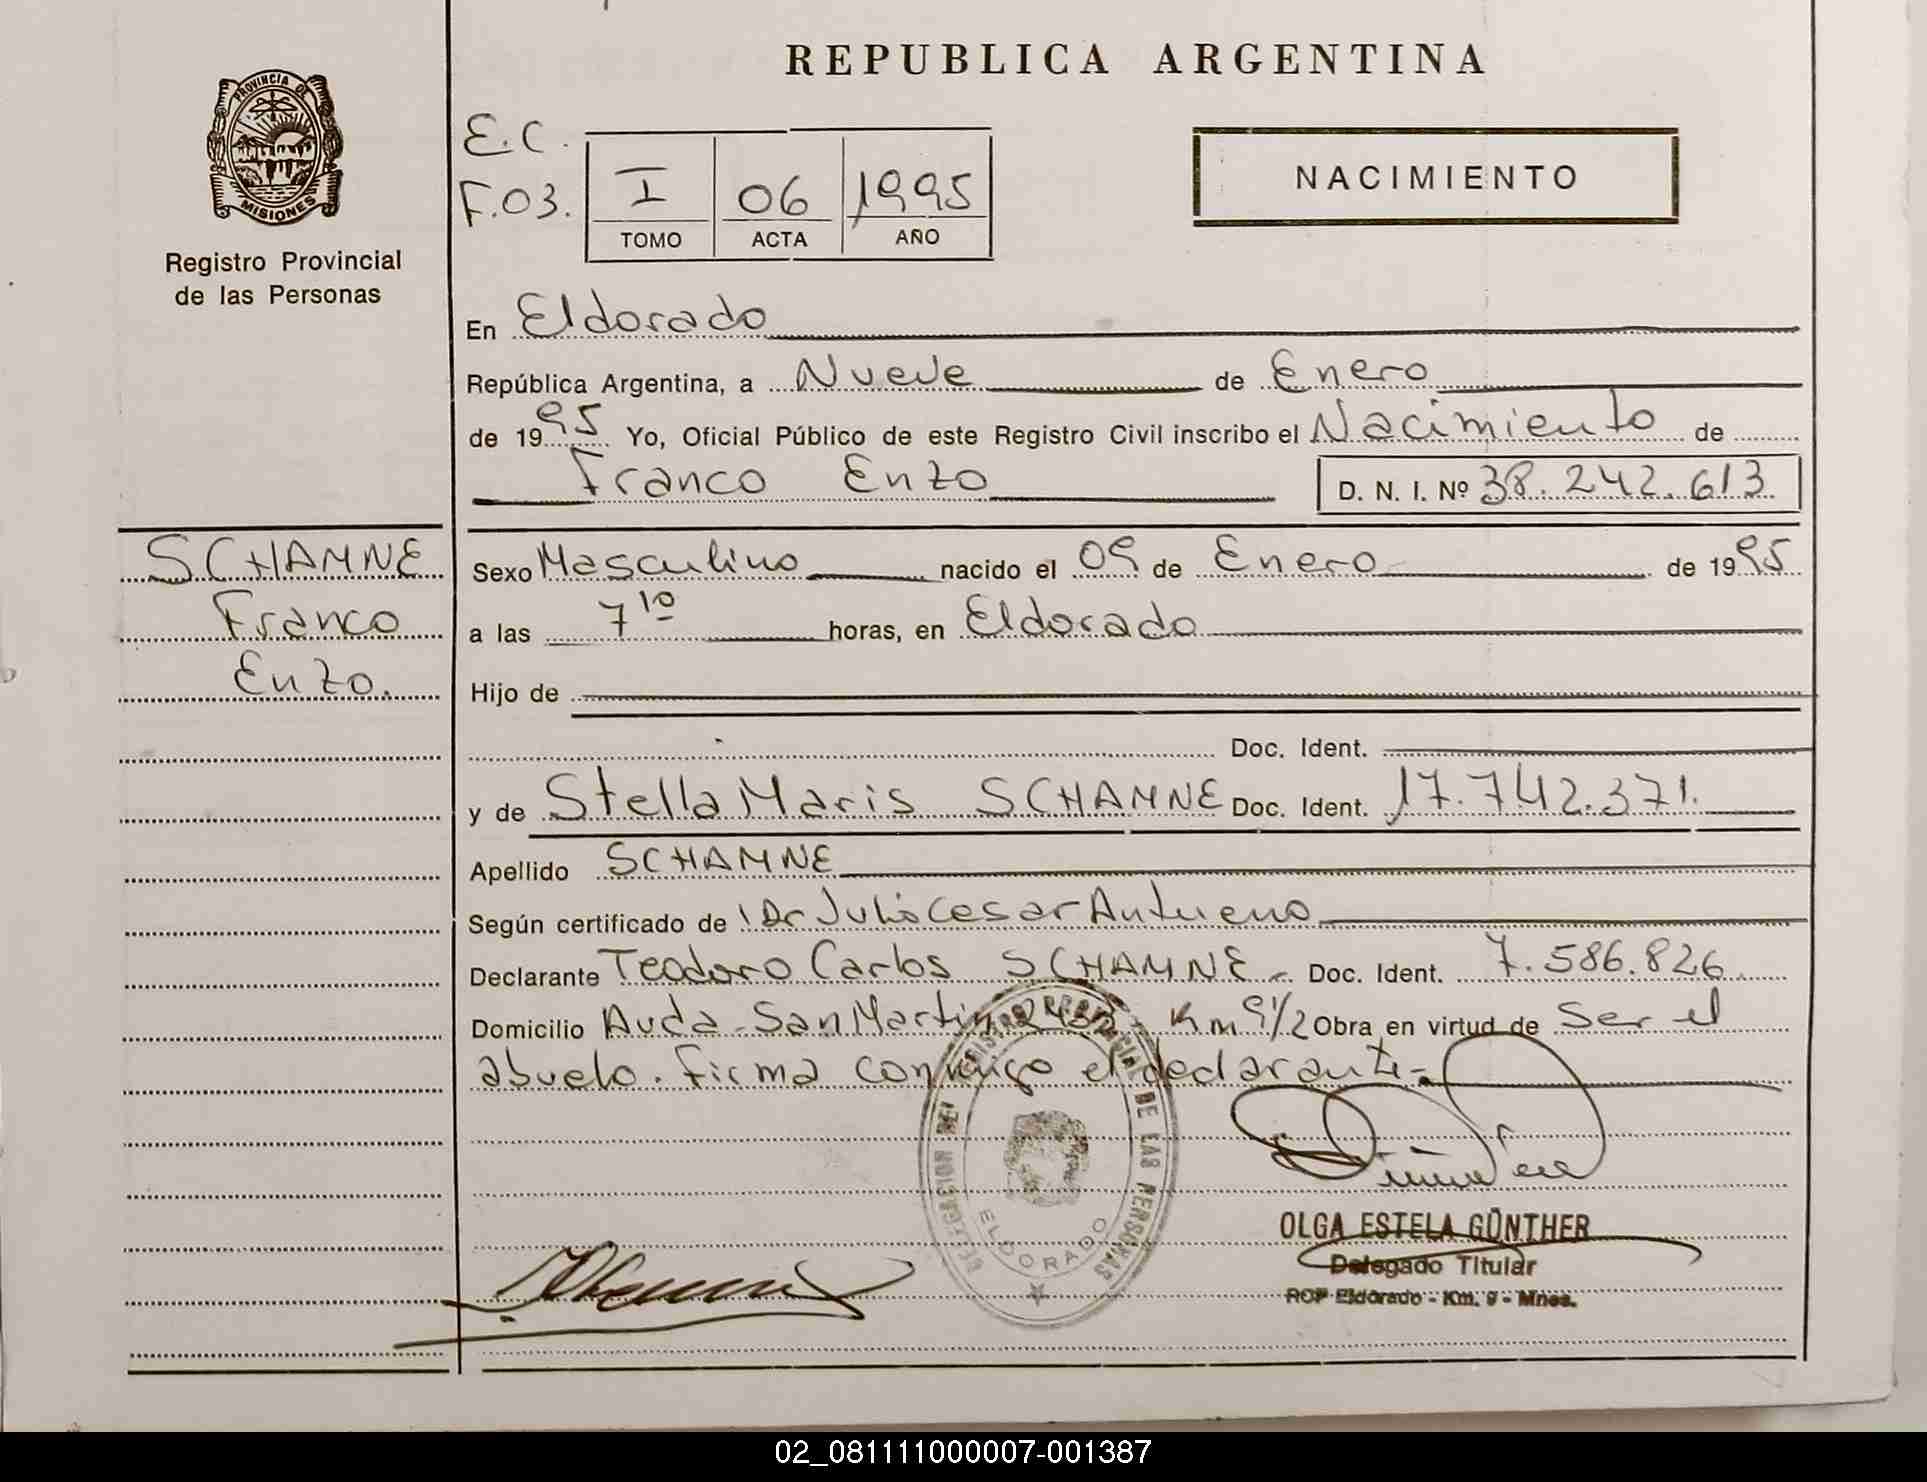 REPUBLICA ARGENTINA
PROVINCIA DE
MISIONES
Registro Provincial
de las Personas
E.C.
F.03.
I 06 1995
TOMO ACTA AÑO
NACIMIENTO
En Eldorado
República Argentina, a Nueve de Enero
de 1995 Yo, Oficial Público de este Registro Civil inscribo el Nacimiento de
Franco Enzo D. N. I. Nº 38.242.613
SCHAMNE
Franco
Enzo.
Sexo Masculino nacido el 09 de Enero de 1995
a las 7 10 horas, en Eldorado
Hijo de
Doc. Ident.
y de Stella Maris SCHAMNE Doc. Ident. 17.742.371.
Apellido SCHAMNE
Según certificado de Dr Julio Cesar Antueno
Declarante Teodoro Carlos SCHAMNE Doc. Ident. 7.586.826
Domicilio Avda San Martin Km 9 1/2 Obra en virtud de Ser el
abuelo. Firma conmigo el declarante-
DE LAS PERSONAS
ELDORADO
OLGA ESTELA GÜNTHER
Delegado Titular
RCP Eldorado - Km. 9 - Mnes.
02_081111000007-001387